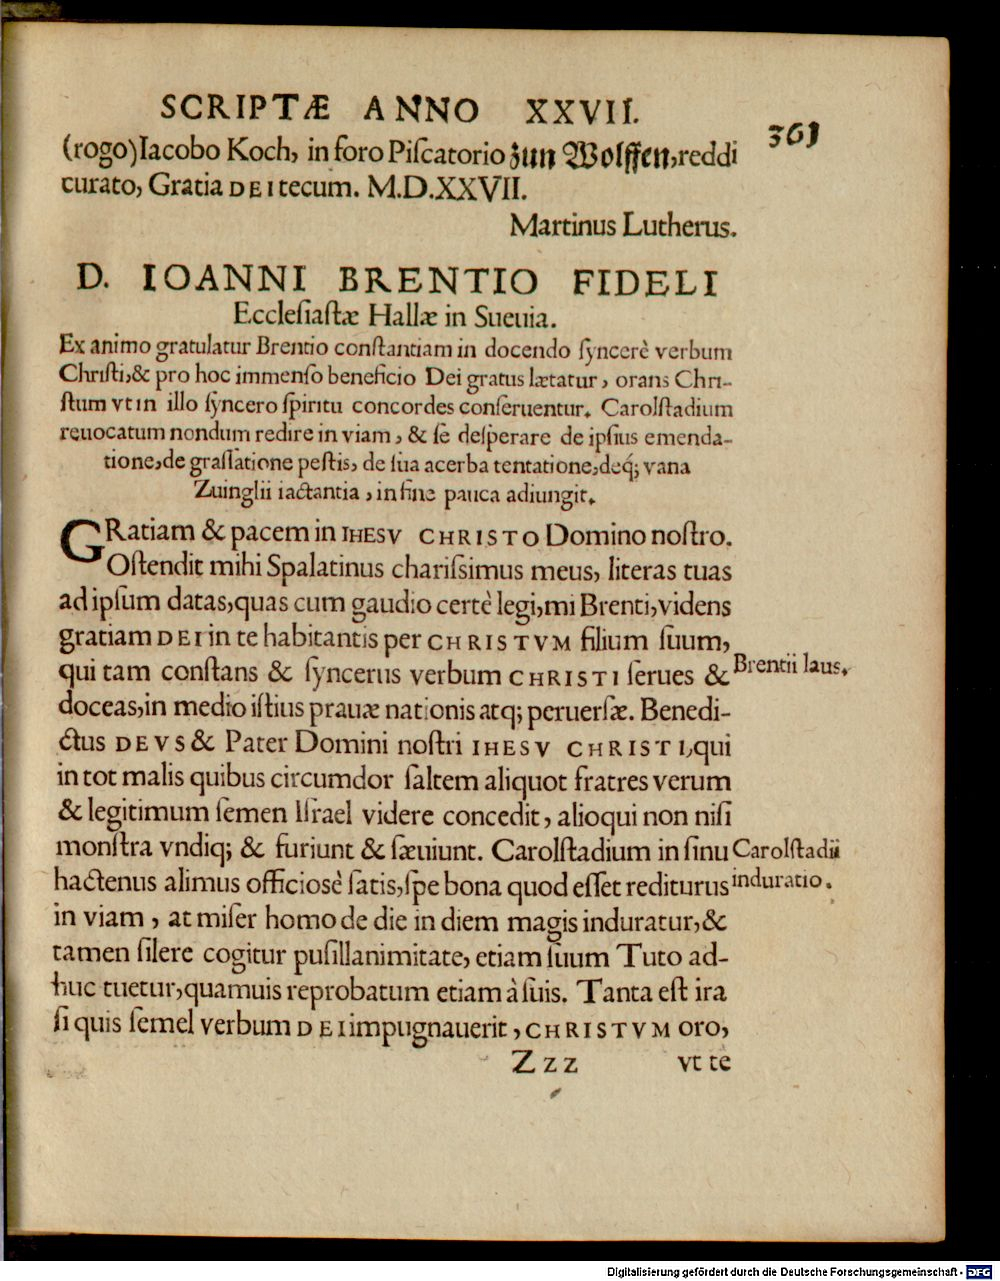 SCRIPTÆ ANNO XXVII.
361
(rogo) Iacobo Koch, in foro Piſcatorio zun Wolffen, reddi
curato, Gratia DEI tecum. M.D.XXVII.
Martinus Lutherus.
D. IOANNI BRENTIO FIDELI
Eccleſiaſtæ Hallæ in Sueuia.
Ex animo gratulatur Brentio conſtantiam in docendo ſyncerè verbum
Chriſti, & pro hoc immenſo beneficio Dei gratus lætatur, orans Chri-
ſtum vt in illo ſyncero ſpiritu concordes conſeruentur. Carolſtadium
reuocatum nondum redire in viam, & ſe deſperare de ipſius emenda-
tione, de graſſatione peſtis, de ſua acerba tentatione, deq; vana
Zuinglii iactantia, in fine pauca adiungit.
GRatiam & pacem in IHESV CHRISTO Domino noſtro.
Oſtendit mihi Spalatinus chariſsimus meus, literas tuas
ad ipſum datas, quas cum gaudio certè legi, mi Brenti, videns
gratiam DEI in te habitantis per CHRISTVM filium ſuum,
qui tam conſtans & ſyncerus verbum CHRISTI ſerues &
Brentii laus.
doceas, in medio iſtius prauæ nationis atq; peruerſæ. Benedi-
ctus DEVS & Pater Domini noſtri IHESV CHRISTI, qui
in tot malis quibus circumdor ſaltem aliquot fratres verum
& legitimum ſemen Iſrael videre concedit, alioqui non niſi
monſtra vndiq; & furiunt & ſæuiunt. Carolſtadium in ſinu
Carolſtadii
hactenus alimus officiosè ſatis, ſpe bona quod eſſet rediturus
induratio.
in viam, at miſer homo de die in diem magis induratur, &
tamen ſilere cogitur puſillanimitate, etiam ſuum Tuto ad-
huc tuetur, quamuis reprobatum etiam à ſuis. Tanta eſt ira
ſi quis ſemel verbum DEI impugnauerit, CHRISTVM oro,
Zzz vt te
Digitalisierung gefördert durch die Deutsche Forschungsgemeinschaft - DFG